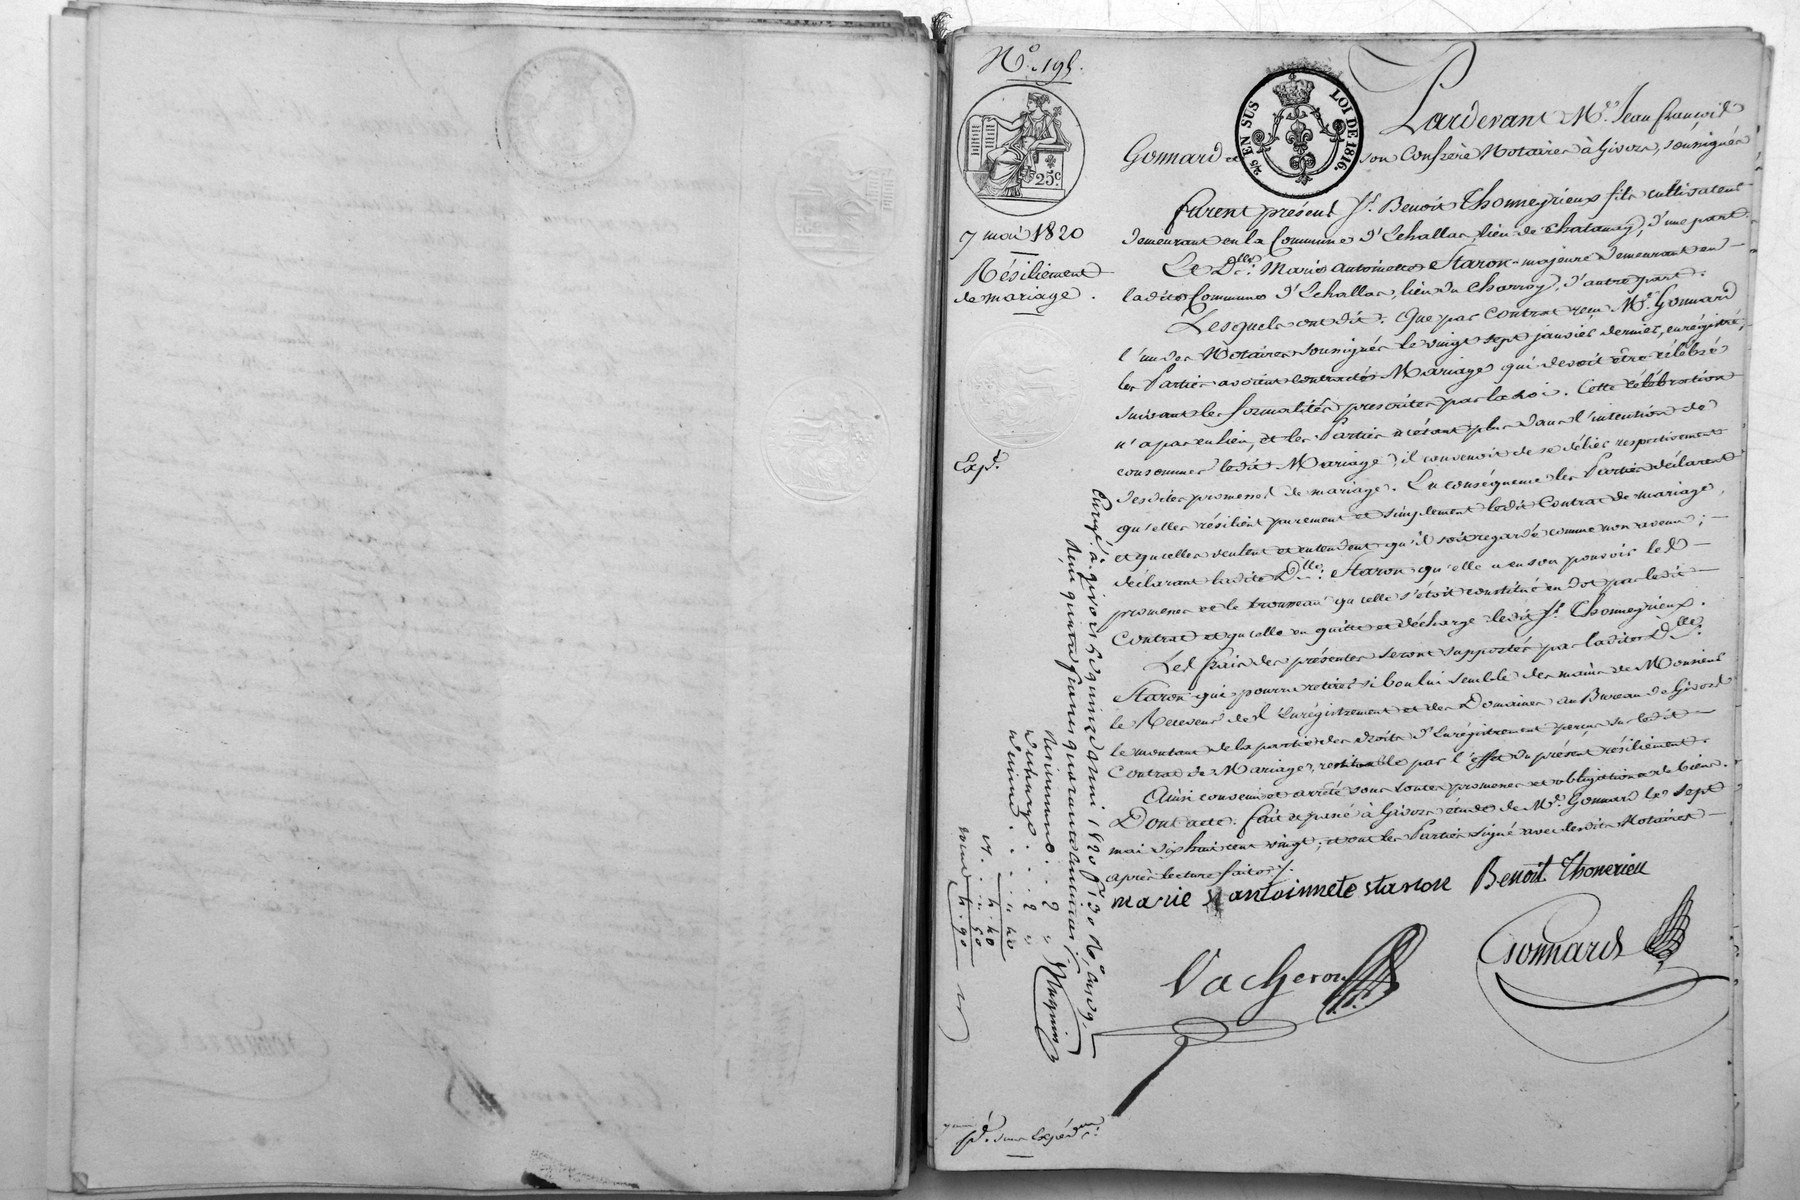 N.º 195.
2/5 EN SUS
LOI DE 1816.
25c.
7 mai 1820
Résiliement
de mariage.
Exp.é
Pardevant M.e Jean françois
Gonnard et son Confrère Notaires à Givors, soussignés
furent présent S.r Benoit Thonneyrieux fils cultivateur
demeurant en la Commune d'Echallas, lieu de Chatanay, d'une part
Et D.lle Marie Antoinette Staron majeure demeurant en
ladite Commune d'Echallas, lieu du Charroy, d'autre part.
Lesquels ont dit: Que par Contrat reçu M.e Gonnard
l'un des Notaires soussignés le vingt sept janvier dernier, enrégistré,
les Parties avoient contracté Mariage qui devoit être célébré
suivant les formalités prescrites par la Loi. Cette célébration
n'a pas eu lieu, et les Parties n'étant plus dans l'intention de
consommer ledit Mariage, il convenoit de se délier respectivement
desdites promesses de mariage. En conséquence les Parties déclarent
qu'elles résilient purement et simplement ledit Contrat de mariage,
et qu'elles veulent et entendent qu'il soit regardé comme non avenu;
déclarant ladite D.lle Staron qu'elle a en son pouvoir les
promesses et le trousseau qu'elle s'étoit constitué en dot par ledit
Contrat et qu'elle en quitte et décharge ledit S.r Thonneyrieux.
Les frais des présentes seront supportés par ladite D.lle
Staron qui pourra retirer si bon lui semble des mains de Monsieur
le Receveur de l'Enrégistrement et des Domaines au Bureau de Givors
le montant de la partie des droits d'Enrégistrement perçus sur ledit
Contrat de Mariage, restituable par l'effet du présent résiliement.
Ainsi convenu et arrêté sous toutes promesses et obligations de biens.
Dont acte: fait et passé à Givors étude de M.e Gonnard le sept
mai dix huit cent vingt; et ont les Parties signé avec lesdits Notaires
après lecture faite /.
marie antoinnete staron Benoit Thonerieu
Vacheron
Gonnard
Enrg.é à givors le quinze mai 1820 f.o 130 R.o
Reçu quatre francs quarante centimes /.
Magnin
2 "
décharge . . 2 "
dixième . . " 40
4. 40
" 50
4. 90